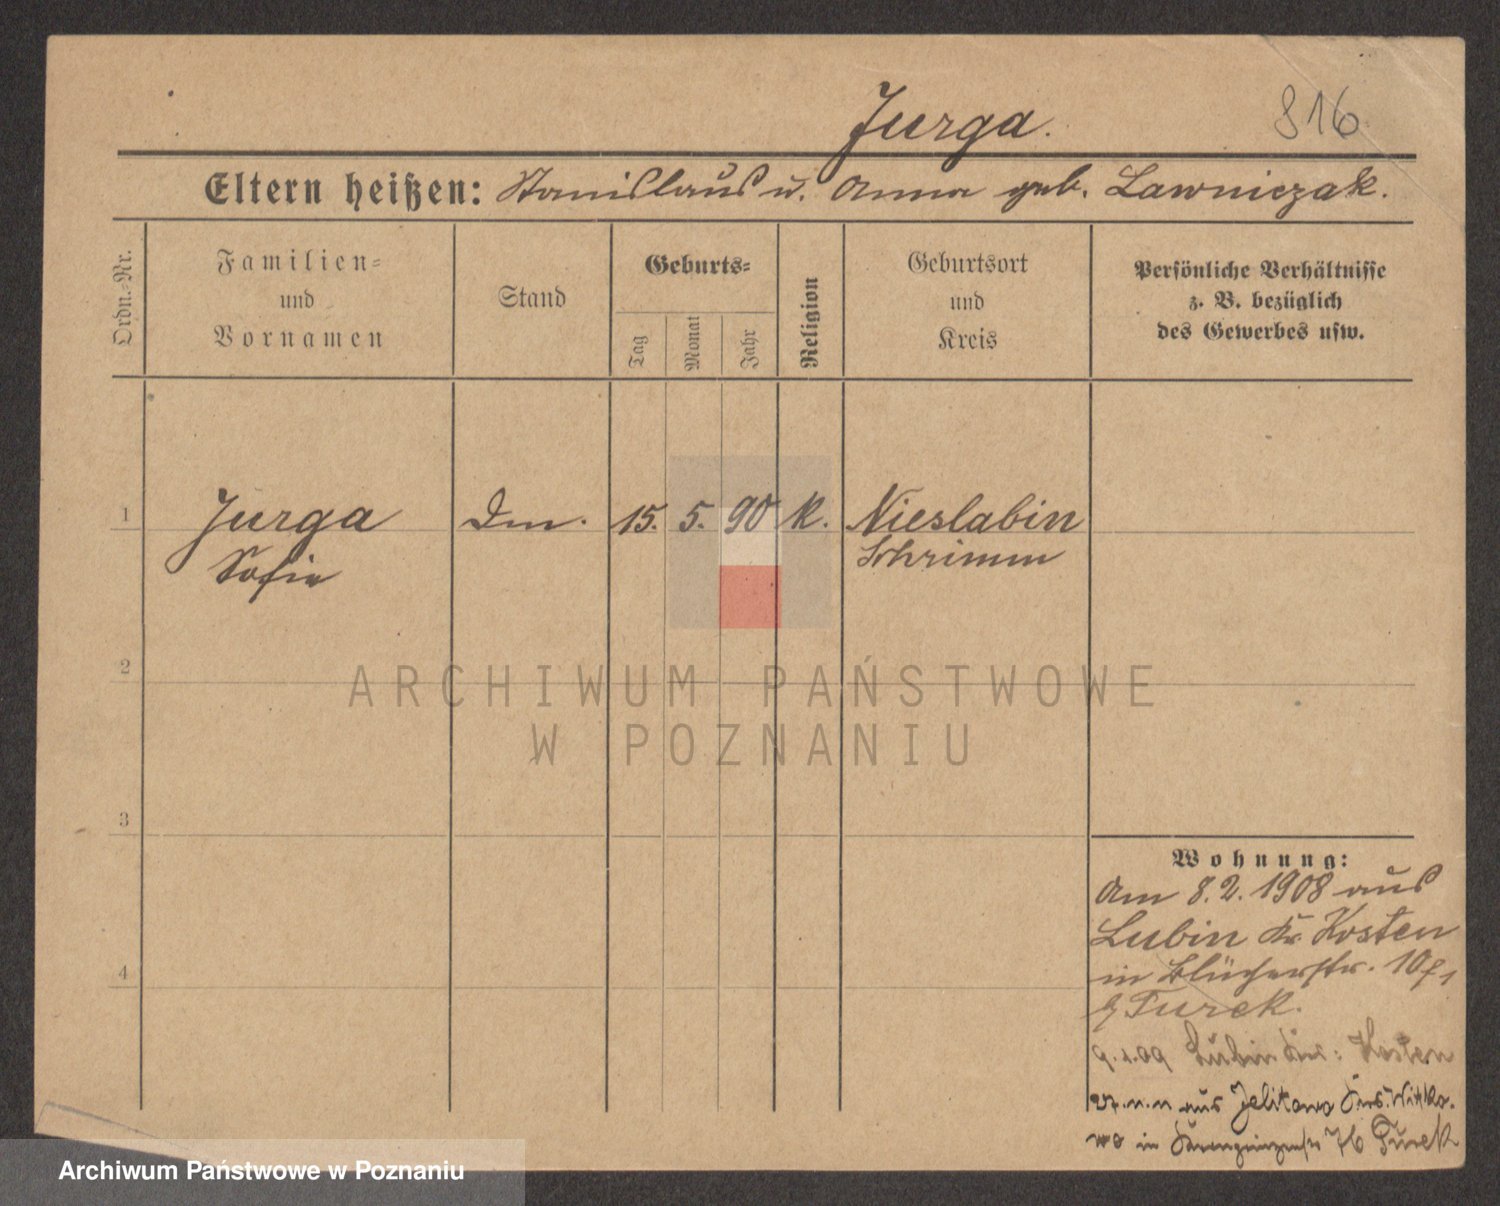 Jurga.
816
Eltern heißen: Stanislaus u. Anna geb. Lawniczak.
Ordn.-Nr.
Familien-
und
Vornamen
Stand
Geburts-
Tag
Monat
Jahr
Religion
Geburtsort
und
Kreis
Persönliche Verhältnisse
z. B. bezüglich
des Gewerbes usw.
1
Jurga
Sofie
Dm.
15. 5. 90
k.
Nieslabin
Schrimm
2
3
4
Wohnung:
Am 8.2.1908 aus
Lubin Kr. Kosten
in Blücherstr. 10
b Turek.
9.1.09 Lubin Krs: Kosten
aus Jelitowo Krs. Witko-
wo in 76 Turek
ARCHIWUM PAŃSTWOWE
W POZNANIU
Archiwum Państwowe w Poznaniu